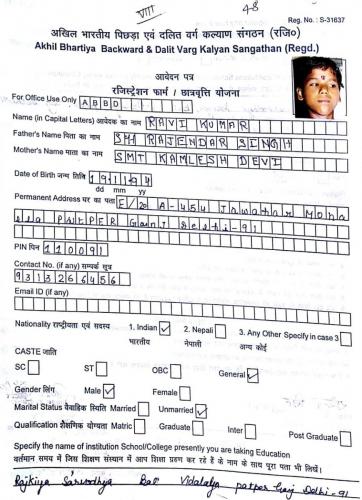 VIII
48
Reg. No. : S-31637
अखिल भारतीय पिछड़ा एवं दलित वर्ग कल्याण संगठन (रजि०)
Akhil Bhartiya Backward & Dalit Varg Kalyan Sangathan (Regd.)
आवेदन पत्र
रजिस्ट्रेशन फार्म / छात्रवृत्ति योजना
For Office Use Only A B B D
Name (in Capital Letters) आवेदक का नाम RAVI KUMAR
Father's Name पिता का नाम SH RAJENDAR SINGH
Mother's Name माता का नाम SMT KAMLESH DEVI
Date of Birth जन्म तिथि 19 11 94
dd mm yy
Permanent Address घर का पता E/20 A-454 Jawahar Moha
lla PatPER Ganj Delhi-91
PIN पिन 110091
Contact No. (if any) सम्पर्क सूत्र
9313266456
Email ID (if any)
Nationality राष्ट्रीयता एवं सदस्य 1. Indian 2. Nepali 3. Any Other Specify in case 3
भारतीय नेपाली अन्य कोई
CASTE जाति
SC ST OBC General
Gender लिंग Male Female
Marital Status वैवाहिक स्थिति Married Unmarried
Qualification शैक्षणिक योग्यता Matric Graduate Inter Post Graduate
Specify the name of institution School/College presently you are taking Education
वर्तमान समय में जिस शिक्षण संस्थान में आप शिक्षा ग्रहण कर रहे हैं के नाम के साथ पूरा पता भी लिखें।
Rajkiya Sarvodhya Bal Vidalaya patpar Ganj Delhi-91